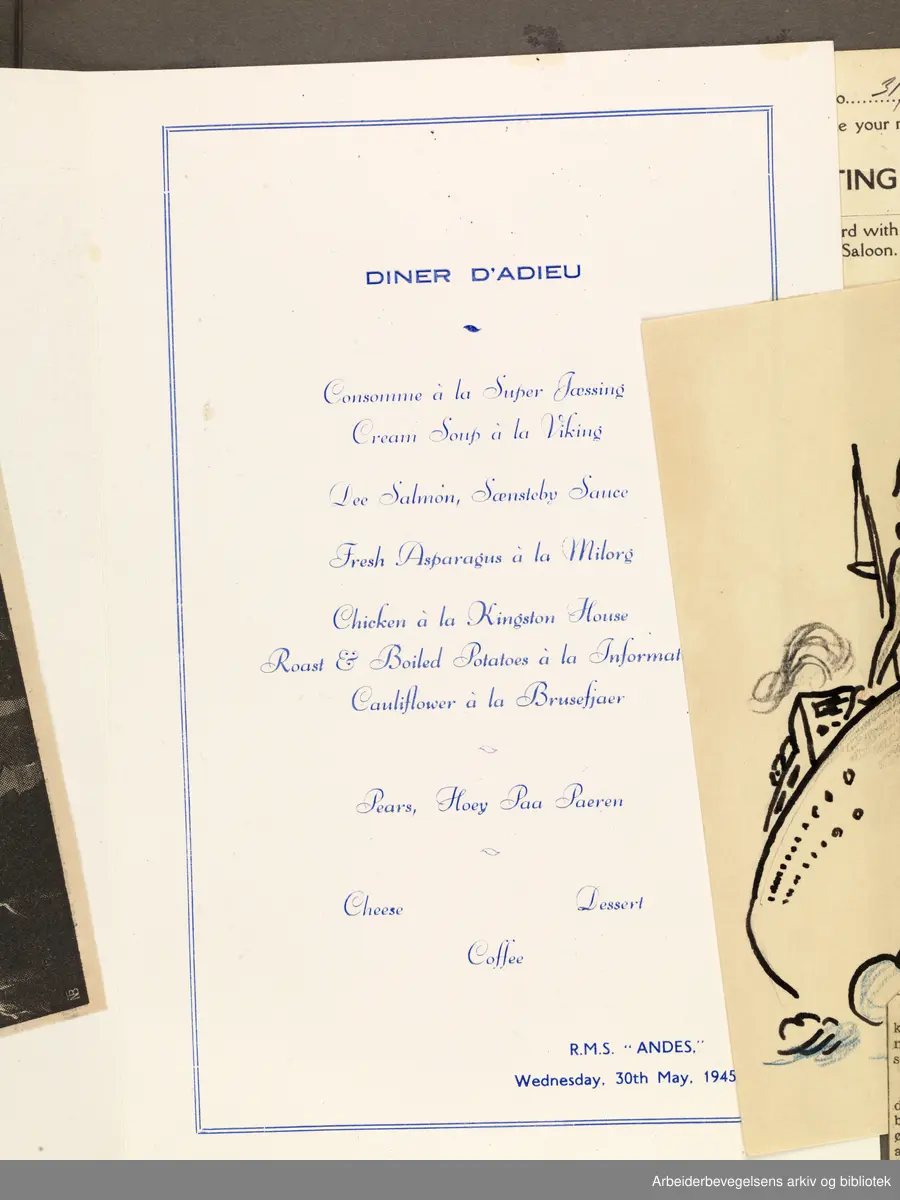 DINER D'ADIEU
Consomme à la Super Jæssing
Cream Soup à la Viking
Dee Salmon, Sænsteby Sauce
Fresh Asparagus à la Milorg
Chicken à la Kingston House
Roast & Boiled Potatoes à la Informat
Cauliflower à la Brusefjaer
Pears, Hoey Paa Paeren
Cheese Dessert
Coffee
R.M.S. "ANDES,"
Wednesday, 30th May, 1945
e your
TING
rd with
Saloon.
NB
Arbeiderbevegelsens arkiv og bibliotek